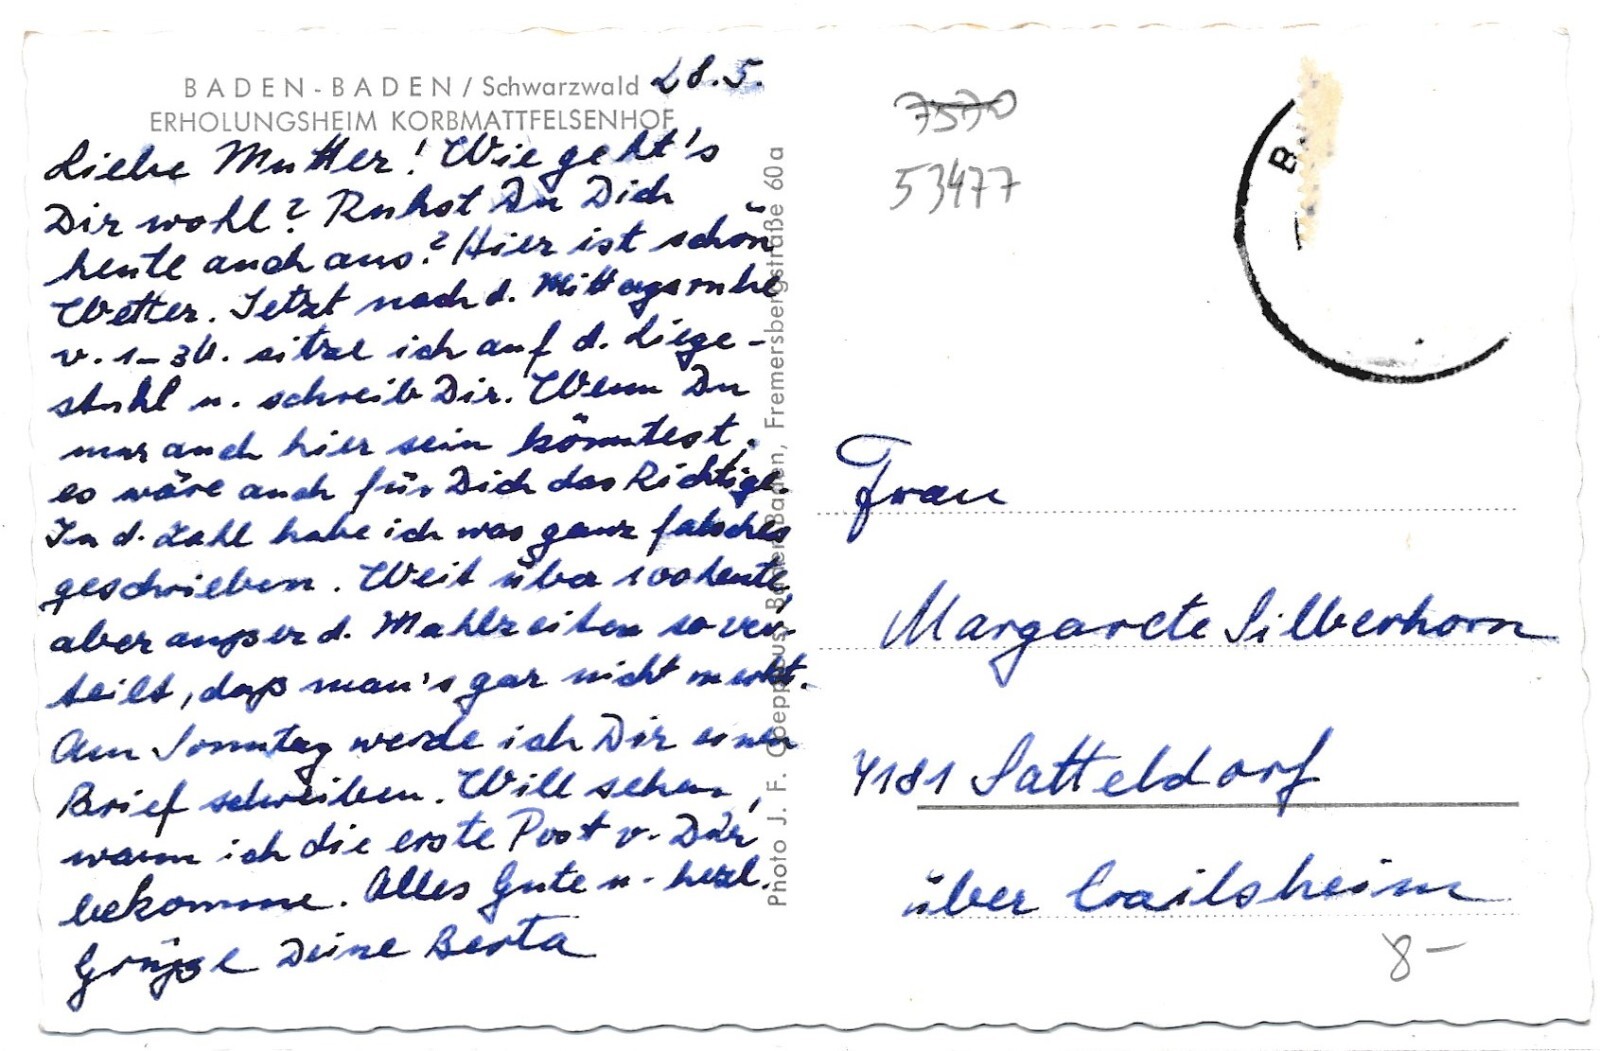 BADEN-BADEN / Schwarzwald 28.5.
ERHOLUNGSHEIM KORBMATTFELSENHOF
Liebe Mutter! Wie geht's
Dir wohl? Ruhst Du Dich
heute auch aus? Hier ist schön
Wetter. Jetzt nach d. Mittagsruhe
v. 1-3 U. sitze ich auf d. Liege-
stuhl u. schreib Dir. Wenn Du
nur auch hier sein könntest,
es wäre auch für Dich das Richtige.
In d. Zahl habe ich was ganz falsches
geschrieben. Weit über 100 Leute,
aber außer d. Mahlzeiten so ver-
teilt, daß man's gar nicht merkt.
Am Sonntag werde ich Dir einen
Brief schreiben. Will sehen,
wann ich die erste Post v. Dir
bekomme. Alles Gute u. herzl.
Grüße Deine Berta
Photo J. F. Coeppius, Baden-Baden, Fremersbergstraße 60a
7570
53477
B
Frau
Margarete Silberhorn
7181 Satteldorf
über Crailsheim
8-